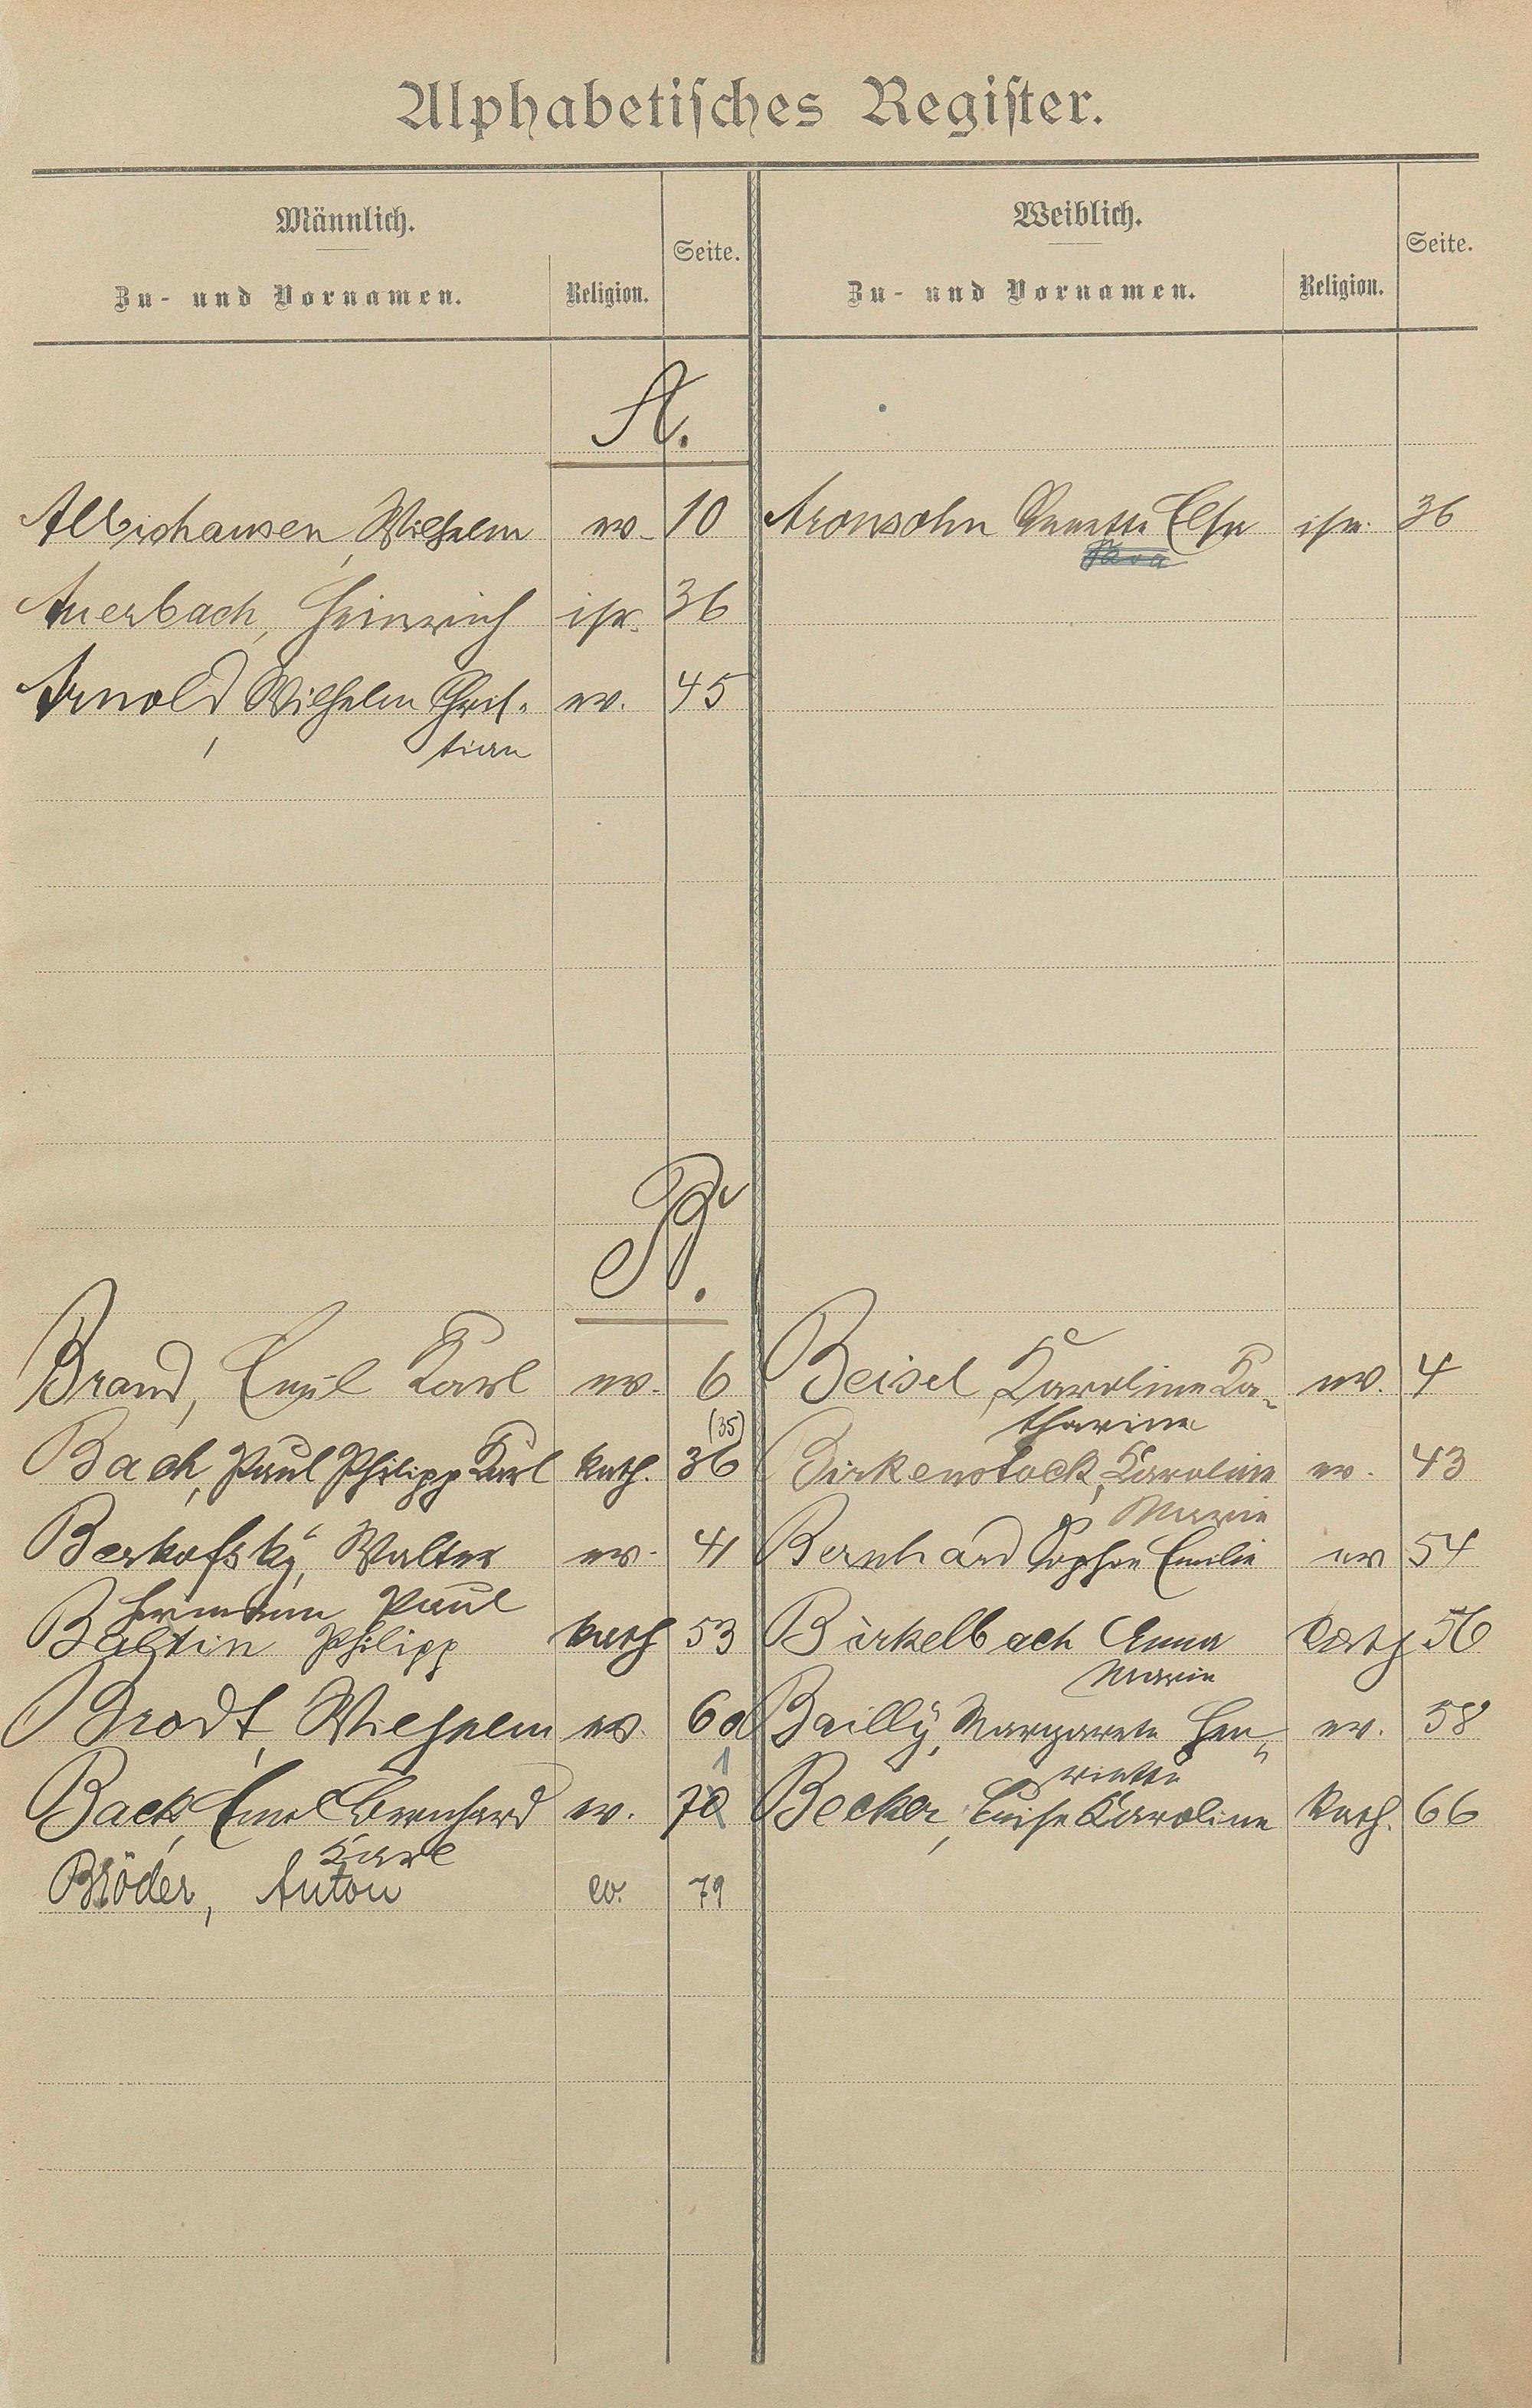 Alphabetisches Register.
Männlich. Seite. Weiblich. Seite.
Zu- und Vornamen. Religion. Zu- und Vornamen. Religion.
A.
Albishausen, Wilhelm ev. 10 Aronsohn Annette Else isr. 36
Sara
Auerbach, Heinrich isr. 36
Arnold, Wilhelm Chris- ev. 45
tian
B.
Brand, Emil Karl ev. 6 Beisel, Karoline Ka- ev. 4
(35) tharina
Bach, Paul Philipp Karl kath. 36 Birkenstock, Karoline ev. 43
Marie
Berkofsky, Walter ev. 41 Bernhard Sophie Emilie ev 54
Hermann Paul
Baltin Philipp kath 53 Birkelbach Anna kath 56
Marie
Brodt, Wilhelm ev. 60 Bailly, Margarete Hen- ev. 58
1 riette
Back, Emil Bernhard ev. 70 Becker, Luise Karoline kath. 66
Karl
Bröder, Anton ev. 79